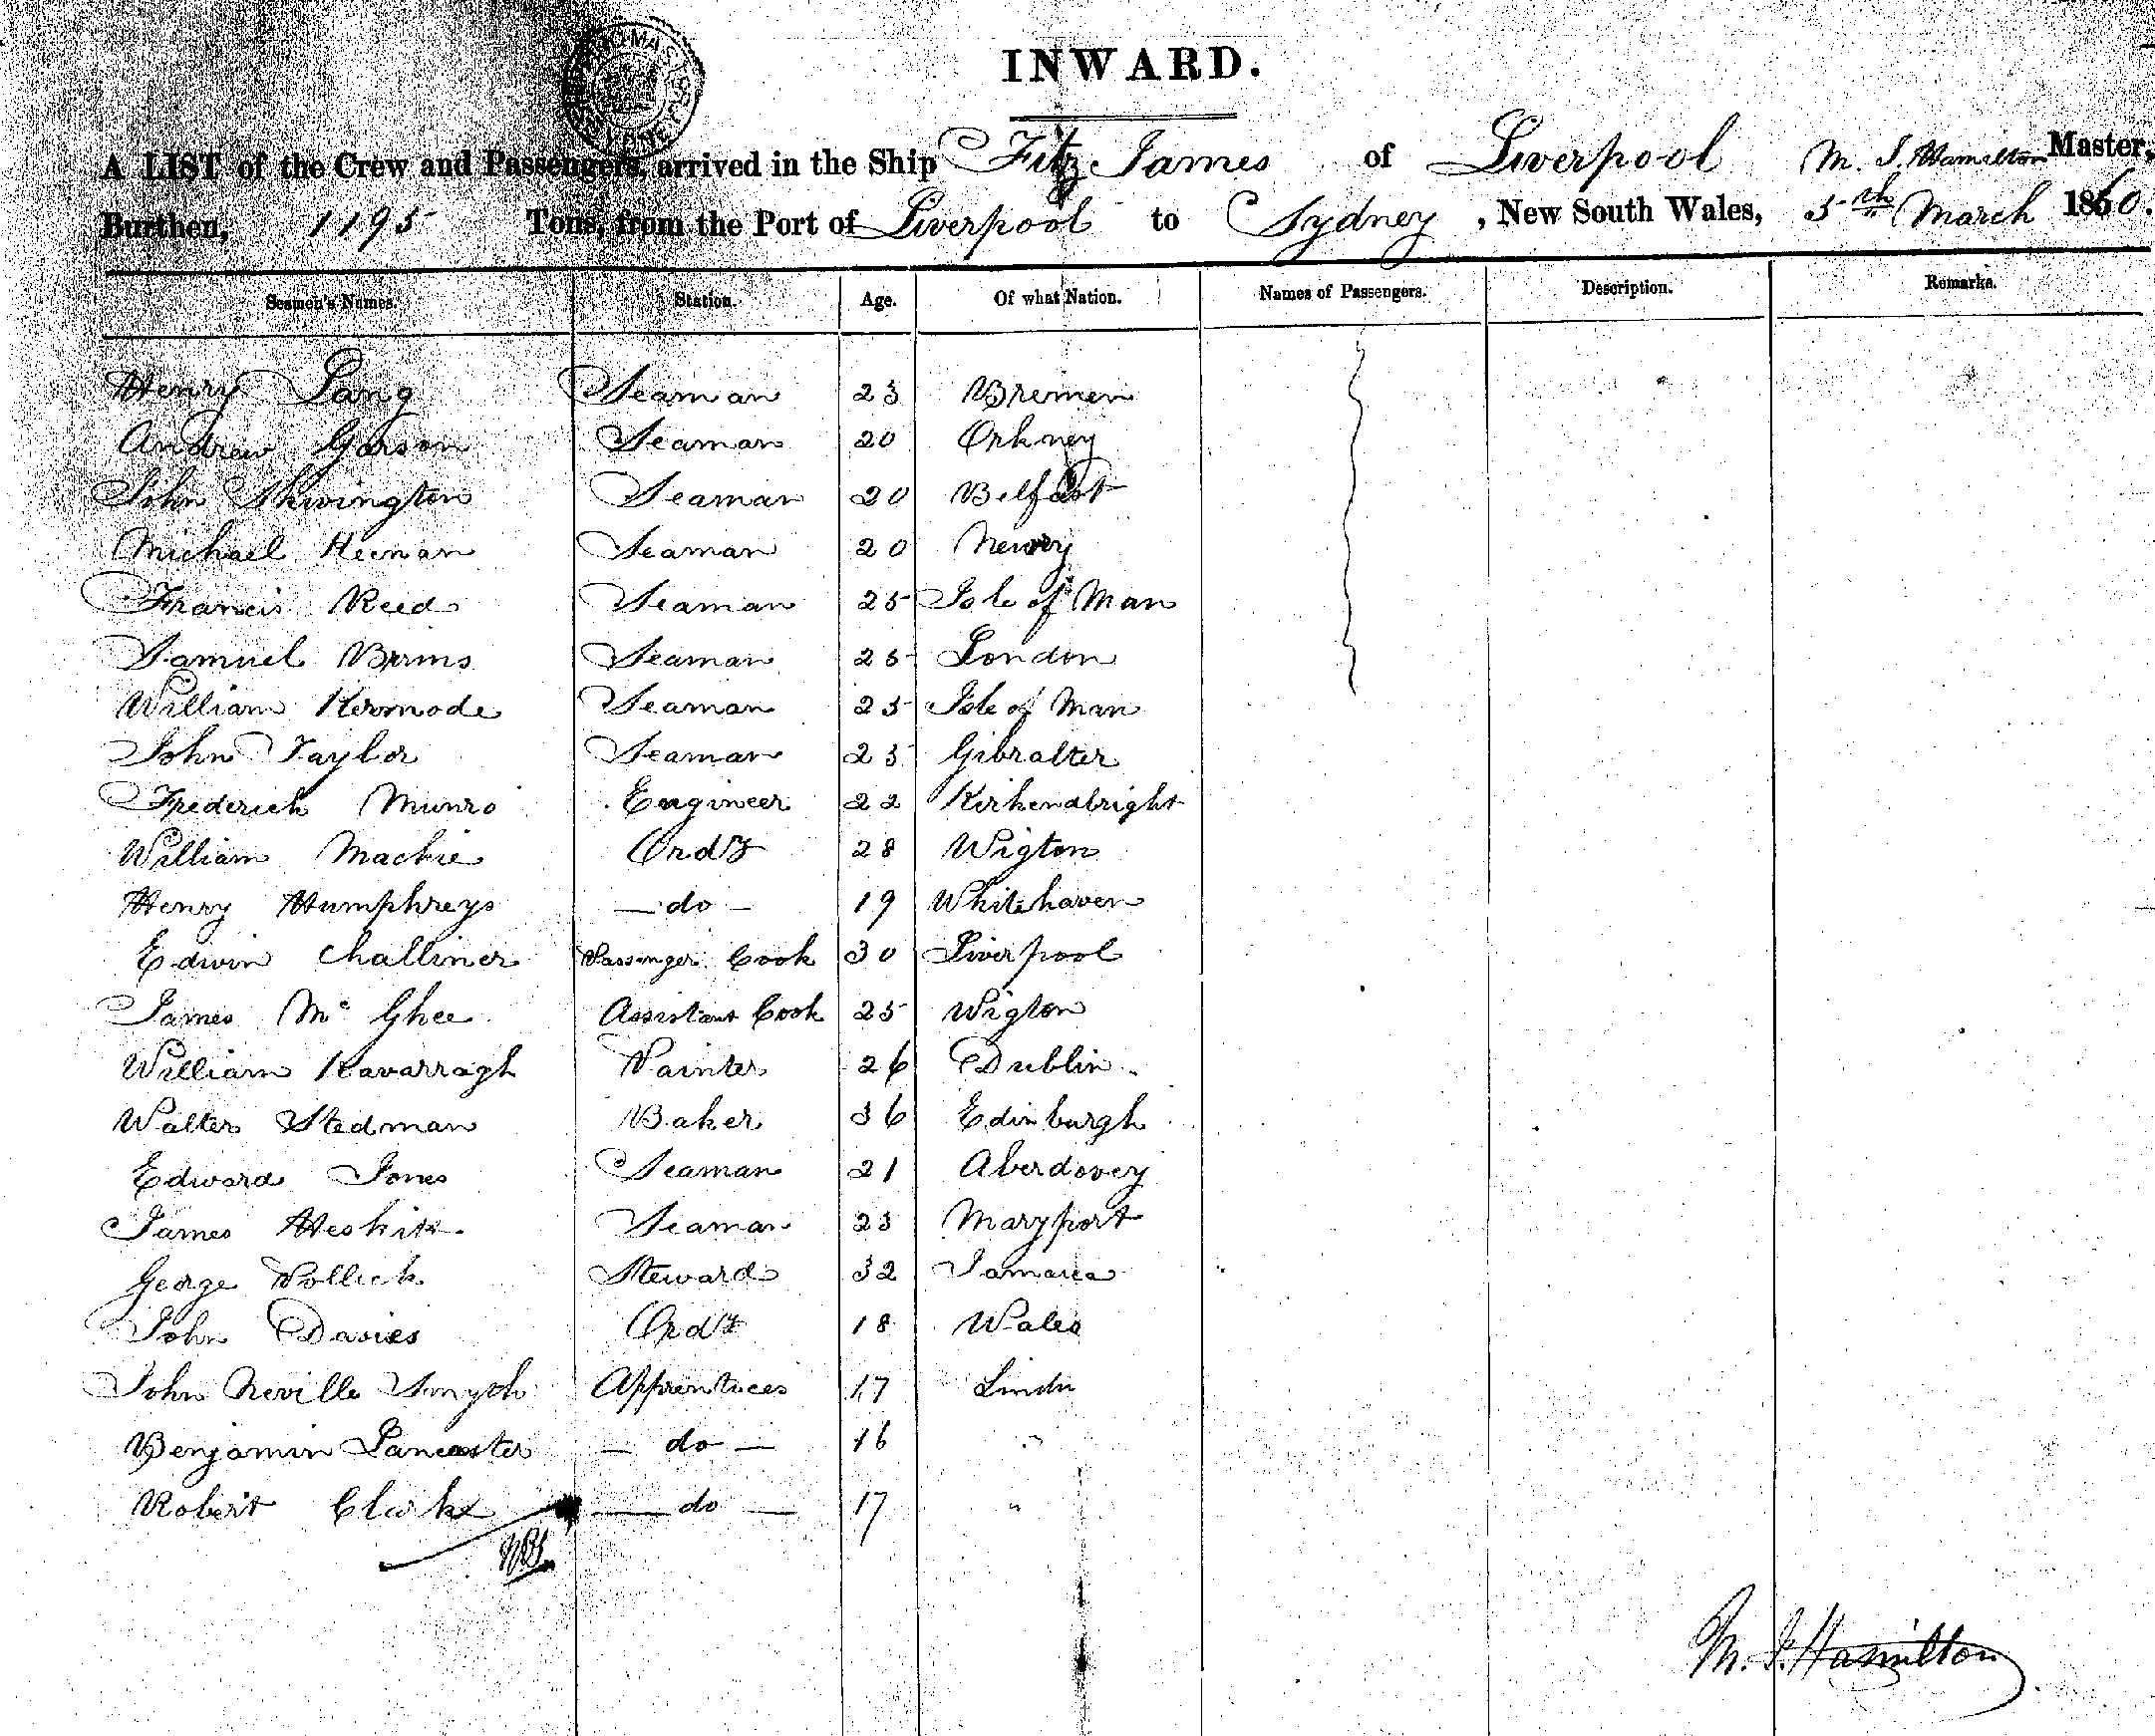 INWARD.
A LIST of the Crew and Passengers, arrived in the Ship Fitz James of Liverpool M. J. Hamilton Master,
Burthen, 1195 Tons, from the Port of Liverpool to Sydney, New South Wales, 5th March 1860.
Seamen's Names. Station. Age. Of what Nation. Names of Passengers. Description. Remarks.
Henry Lang Seaman 23 Bremen
Andrew Garson Seaman 20 Orkney
John Skivington Seaman 20 Belfast
Michael Heenan Seaman 20 Newry
Francis Reed Seaman 25 Isle of Man
Samuel Seaman 25 London
William Kermode Seaman 25 Isle of Man
John Taylor Seaman 23 Gibralter
Frederick Munro Engineer 22 Kirkendbright
William Mackie Ordy 28 Wigton
Henry Humphreys — do — 19 Whitehaven
Edwin Challiner Passenger Cook 30 Liverpool
James Mc Ghee Assistant Cook 25 Wigton
William Kavarragh Painter 26 Dublin
Walter Stedman Baker 36 Edinburgh
Edward Jones Seaman 21 Aberdovey
James Seaman 23 Maryport
George Pollick Steward 32 Jamaica
John Davies Ordy 18 Wales
John Neville Smyth Apprentices 17
Benjamin Lancaster — do — 16 "
Robert Clarke — do — 17 "
M. J. Hamilton